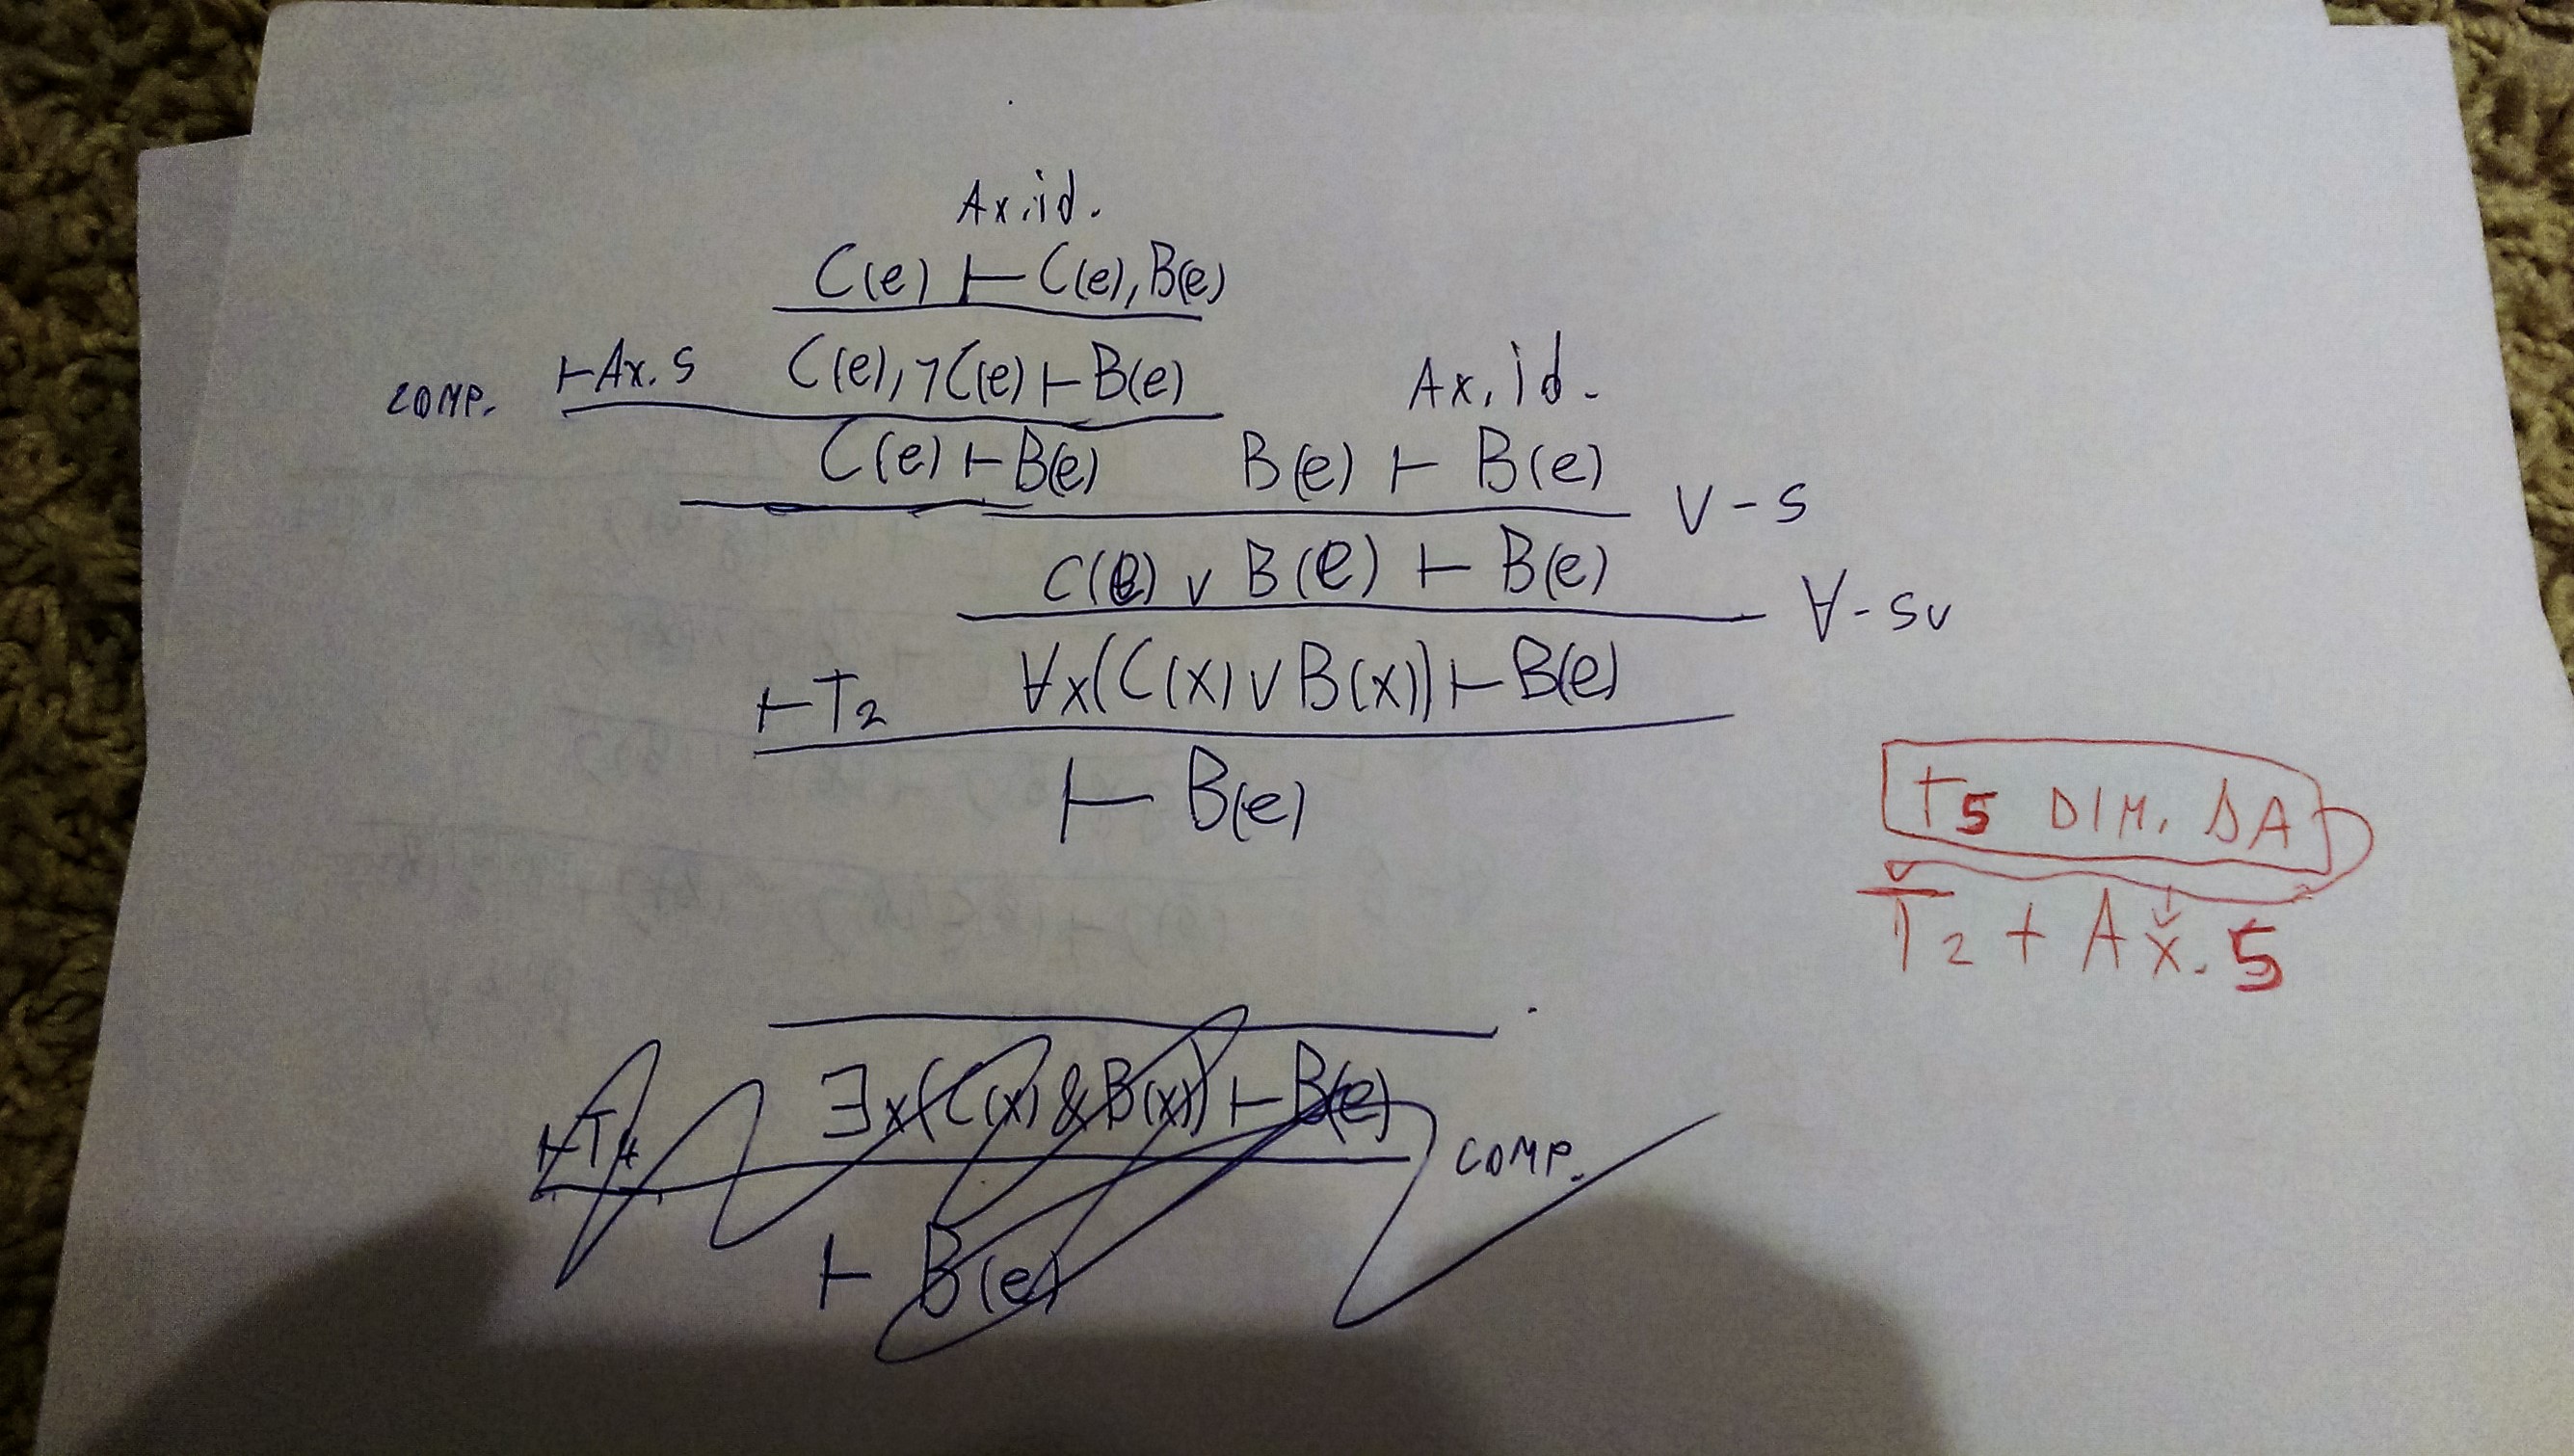 Ax.id.
C(e) ⊢ C(e), B(e)
comp. ⊢Ax. 5 C(e), ¬C(e) ⊢ B(e) Ax. id.
C(e) ⊢ B(e) B(e) ⊢ B(e) ∨-S
C(e) ∨ B(e) ⊢ B(e) ∀-Sv
⊢T2 ∀x(C(x) ∨ B(x)) ⊢ B(e)
⊢ B(e)
T5 DIM. DA
T2 + Ax. 5
∃x(C(x) & B(x)) ⊢ B(e)
⊢T4 COMP.
⊢ B(e)